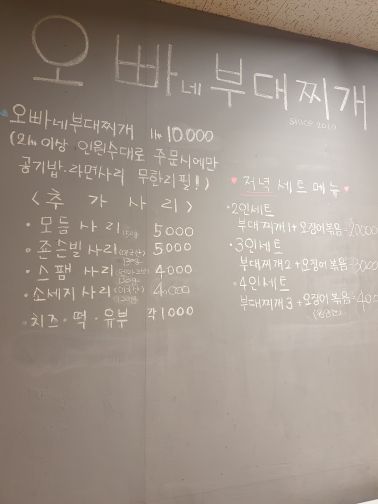 오빠네 부대찌개
since 2010
오빠네부대찌개 1인 10.000
(2인 이상 인원수대로 주문시에만
공기밥·라면사리 무한리필!)
<추가사리>
· 모듬사리 5000
· 존슨빌사리 5000
· 스팸사리 4000
· 소세지사리 4000
· 치즈·떡·유부 각 1000
♥ 저녁 세트 메뉴 ♥
· 2인세트
부대찌개1+오징어볶음
· 3인세트
부대찌개2+오징어볶음
· 4인세트
부대찌개3+오징어볶음